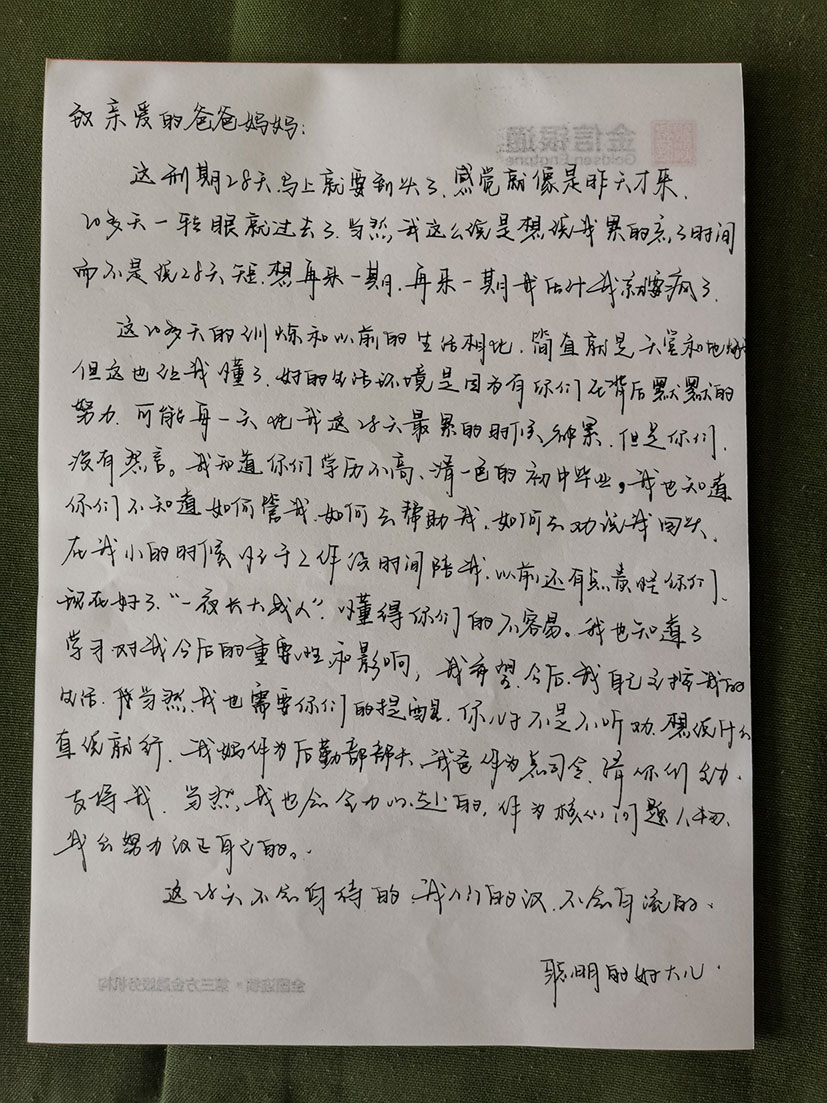 致亲爱的爸爸妈妈:
金信银通
Goldsen Engtone
这刑期28天马上就要到头了.感觉就像是昨天才来.
20多天一转眼就过去了.当然,我这么说是想说我累的忘了时间
而不是说28天短.想再来一期.再来一期我估计我就要疯了.
这20多天的训炼和以前的生活相比.简直就是天堂和地
但这也让我懂了.好的生活环境是因为有你们在背后默默的
努力.可能每一天比我这28天最累的时候都累.但是你们.
没有怨言。我知道你们学历不高、清一色的初中毕业,我也知道
你们不知道如何管我.如何去帮助我.如何去劝说我回头.
在我小的时候忙于工作没时间陪我.以前还有点责怪你们.
现在好了."一夜长大成人".懂得你们的不容易。我也知道了
学习对我今后的重要性和影响,我希望.今后.我自己主掌我的
生活.当然,我也需要你们的提醒.你儿子不是不听劝.想说什么
直说就行.我妈作为后勤部部长、我爸作为总司令.请你们全力.
支持我.当然,我也会全力以赴的.作为核心问题人物.
我会努力改正自己的。.
这28天不会白待的.我们的汉.不会白流的.
聪明的好大儿.
全国连锁·第三方金融服务机构